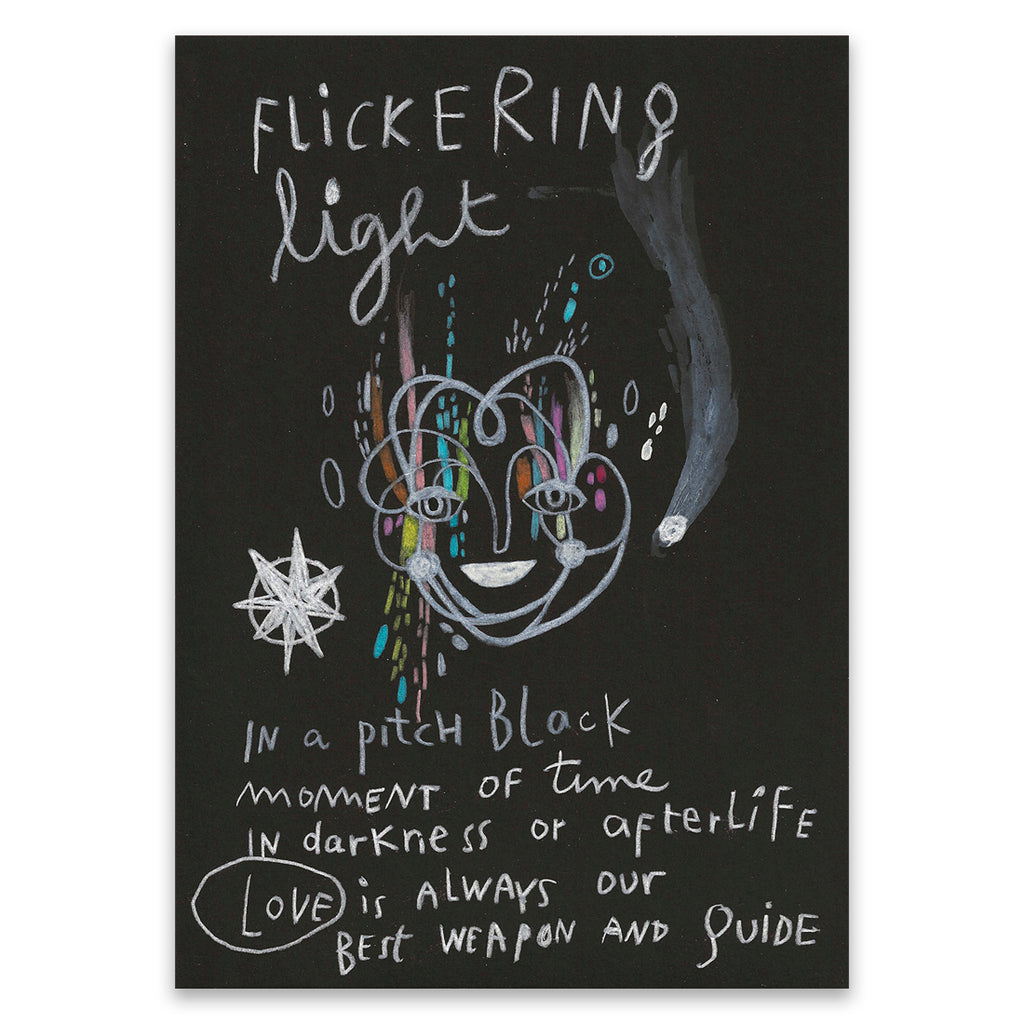 FLICKERING
light
IN a pitcH BLacK
moMENT OF time
IN darkness or afterLiFE
LOVE is ALWAYS our
BEst WEAPON AND gUiDE